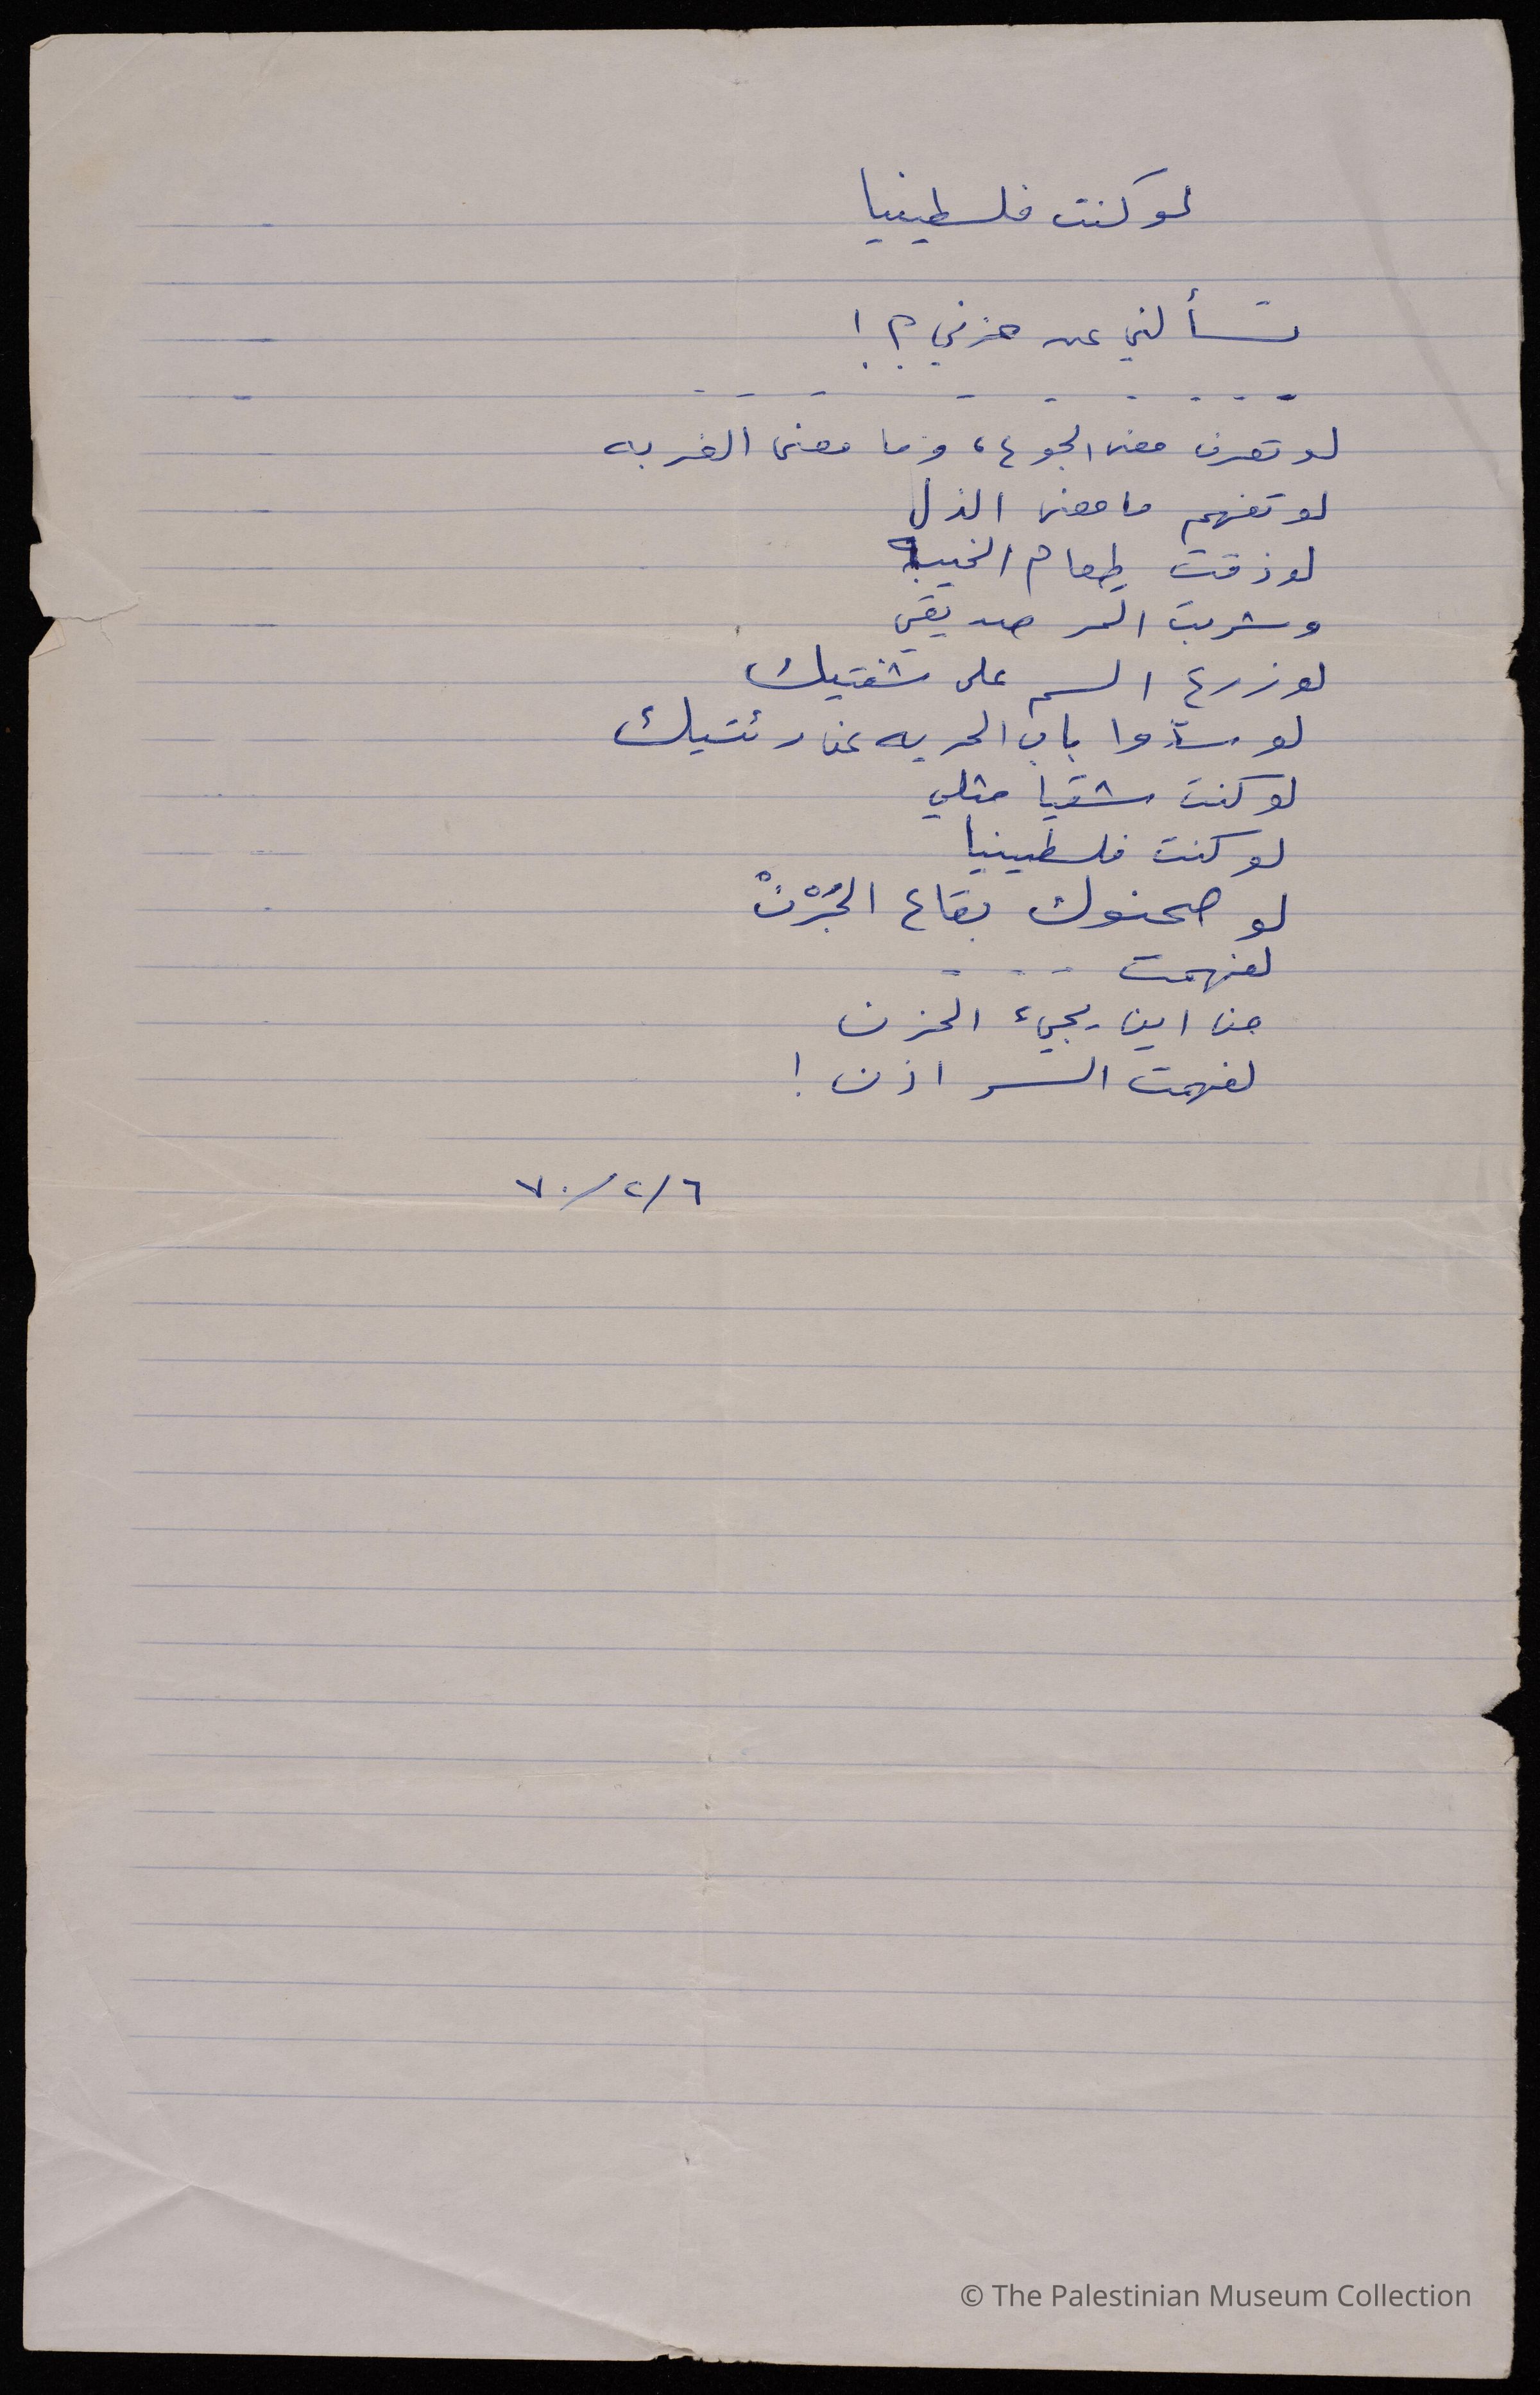 لو كنت فلسطينيا
تسألني عن حزني ؟!
لو تعرف معنى الجوع، وما معنى الغربه
لو تفهم ما معنى الذل
لو ذقت طعام الخيبه
وشربت المر صديقي
لو زرع السم على شفتيك
لو سدّوا باب الحريه عن رئتيك
لو كنت شقيا مثلي
لو كنت فلسطينيا
لو صحنوك بقاع الجُرْنْ
لفهمت - - -
من اين يجيء الحزن
لفهمت السر اذن !
٦/٢/٧٠
© The Palestinian Museum Collection